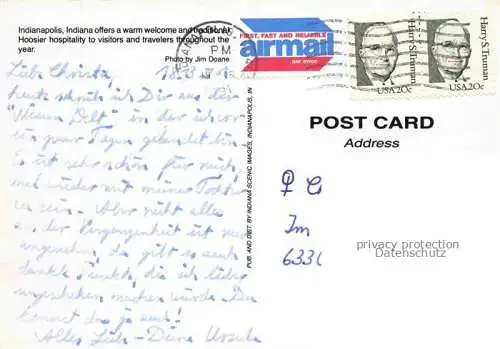 Indianapolis, Indiana offers a warm welcome and traditional
Hoosier hospitality to visitors and travelers throughout the
year.
Photo by Jim Doane
FIRST, FAST AND RELIABLE
airmail
par avion
PM
Harry S. Truman
USA 20c
Harry S. Truman
USA 20c
PUB. AND DIST. BY INDIANA SCENIC IMAGES, INDIANAPOLIS, IN
Liebe Christa,
heute schreib ich Dir aus der
"Neuen Welt" in der ich vor
ein paar Tagen gelandet bin.
Es ist sehr schön für mich,
mal wieder mit meiner Tochter
zu sein - Aber nicht alles
der Vergangenheit ist
angenehm, da gibt es auch
dunkle Punkte, die ich lieber
ungeschehen machen würde. Du
kennst das ja auch!
Alles Liebe - Deine Ursula
POST CARD
Address
Im
privacy protection
Datenschutz